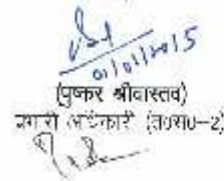 01/01/2015
(पुष्कर श्रीवास्तव)
प्रभारी अधिकारी (त0स0-2)